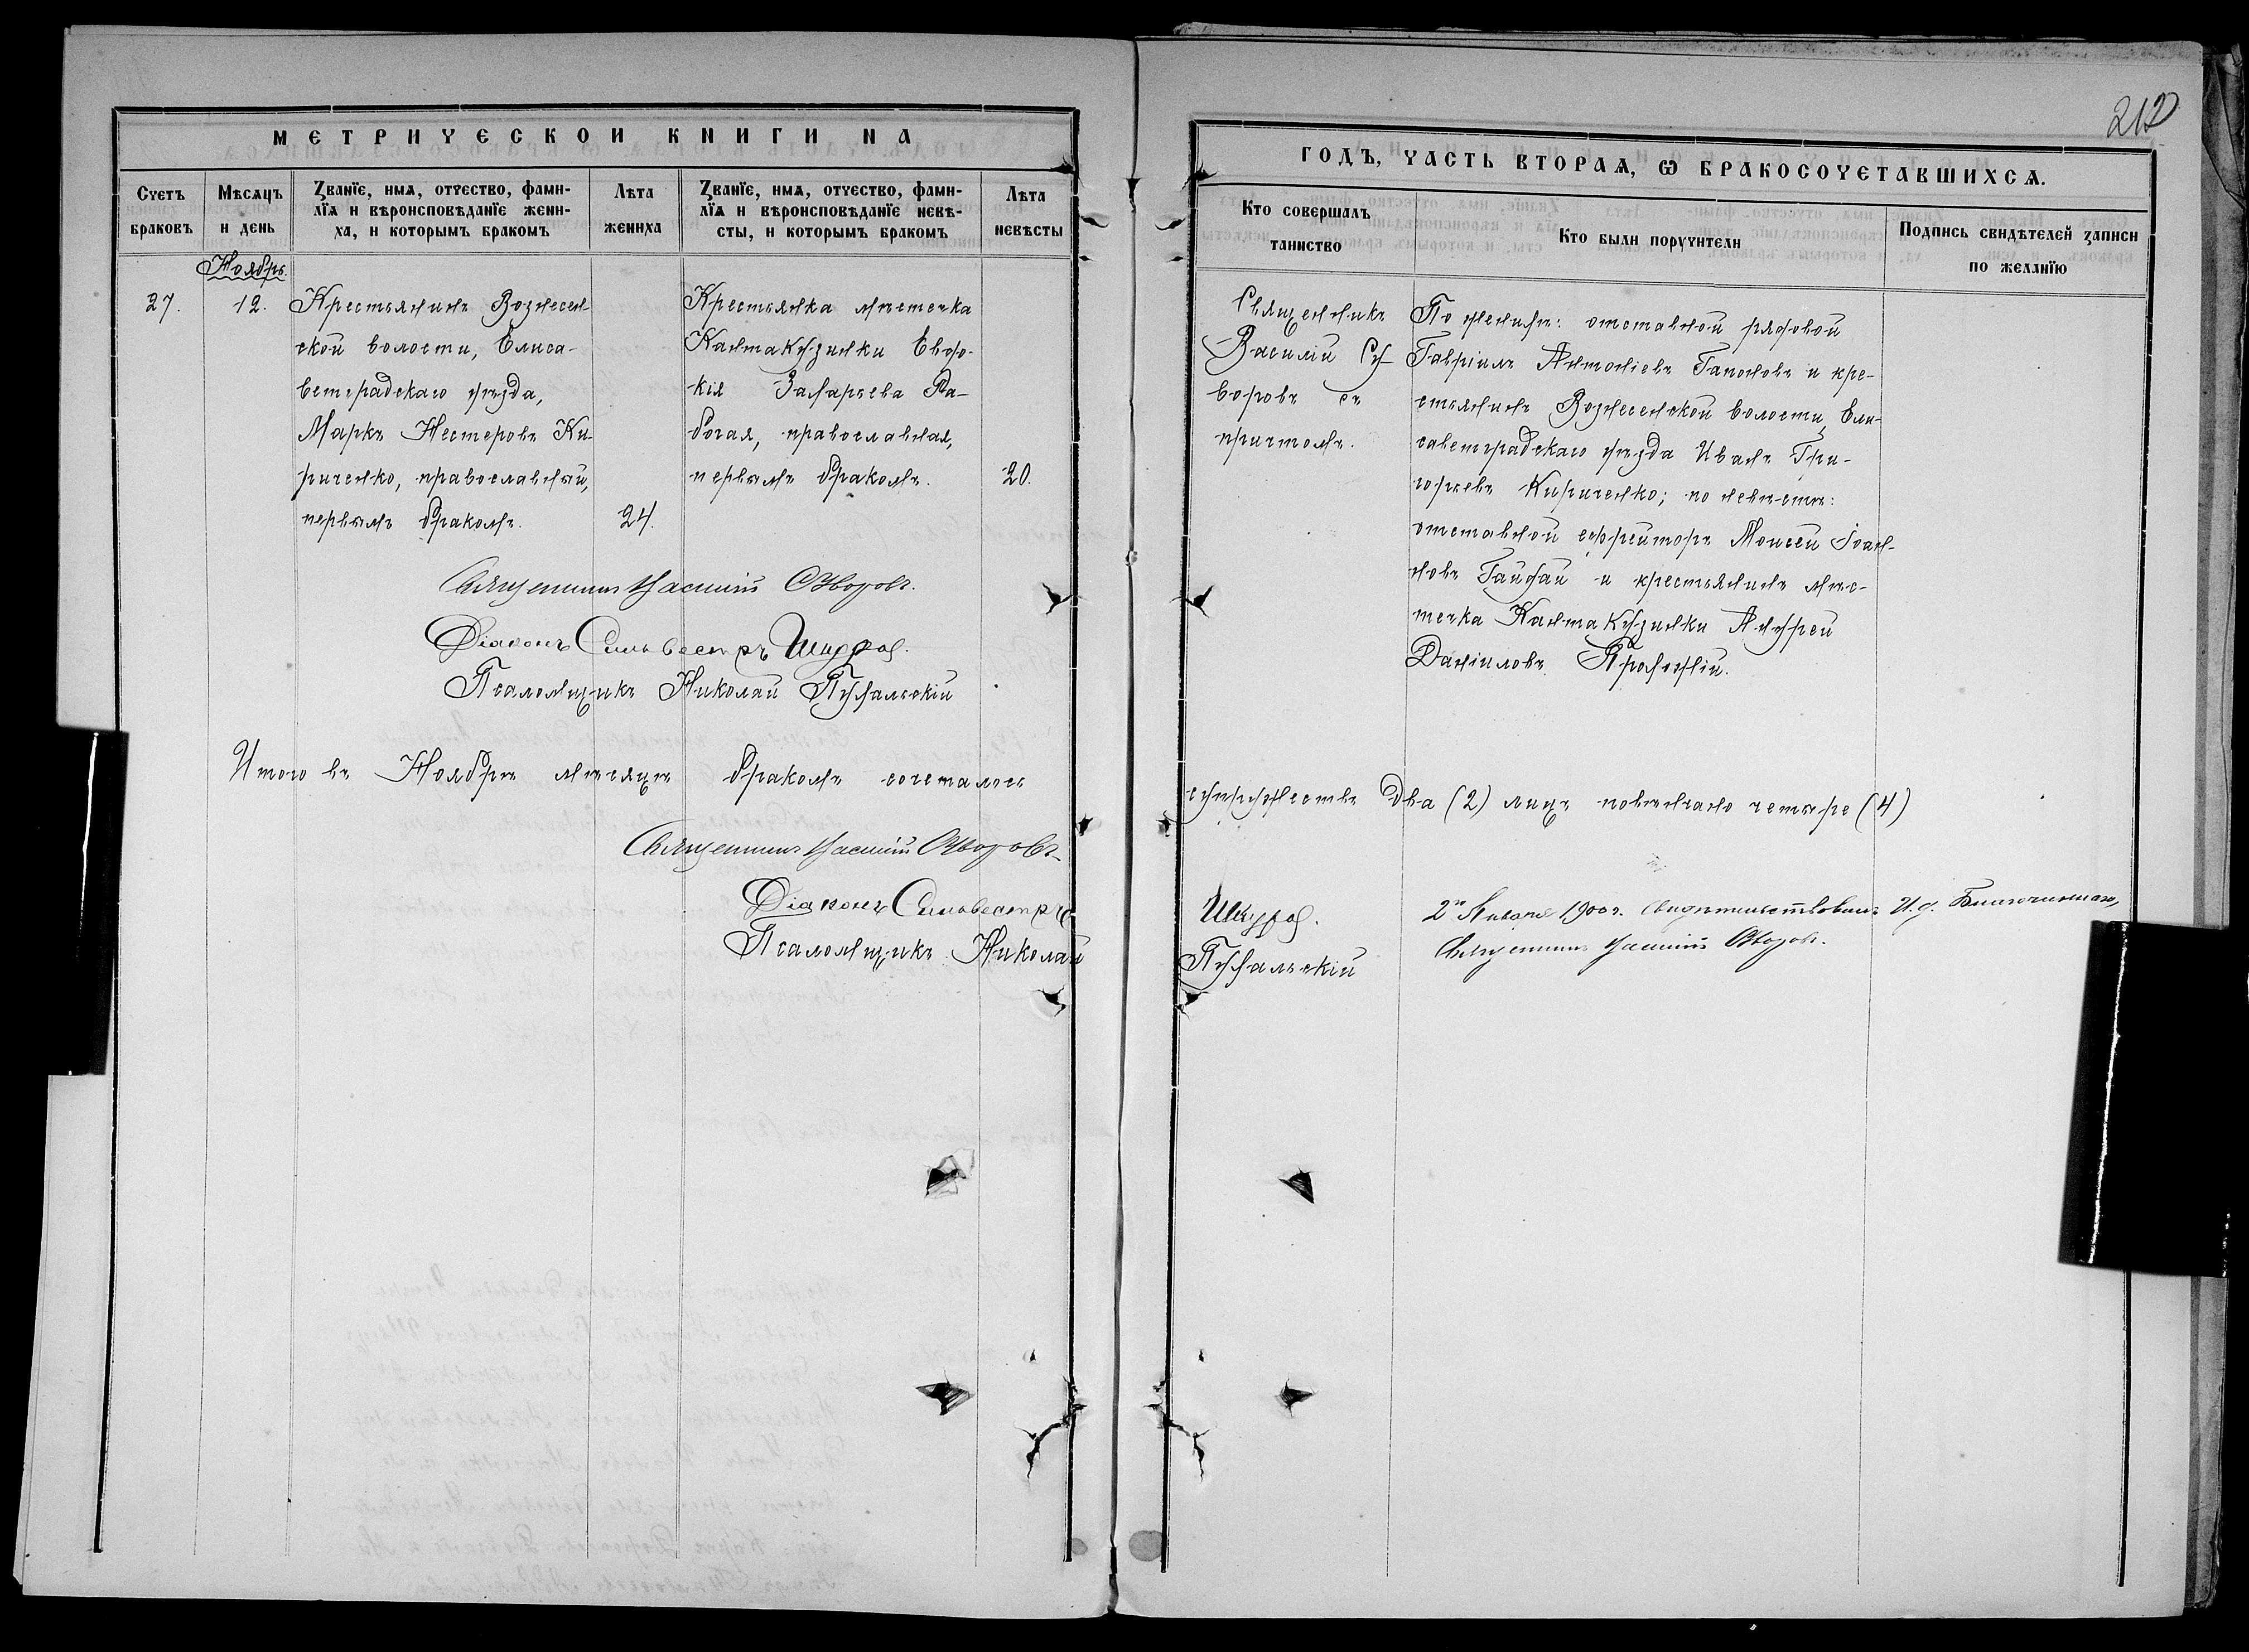 212
МЕТРИЧЕСКОЙ КНИГИ НА
ГОДЪ, ЧАСТЬ ВТОРАѦ, Ѡ БРАКОСОЧЕТАВШИХСѦ.
Счетъ браковъ
Мѣсяцъ и день
Званїе, имѧ, отчество, фами-
лїѧ и вѣроисповѣданїе жени-
ха, и которымъ бракомъ
Лѣта жениха
Званїе, имѧ, отчество, фами-
лїѧ и вѣроисповѣданїе невѣ-
сты, и которымъ бракомъ
Лѣта невѣсты
Кто совершалъ таинство
Кто были поручители
Подпись свидѣтелей записи по желанїю
Ноябрь.
27.
12.
Крестьянинъ Вознесен-
ской волости, Елиса-
ветградскаго уѣзда,
Маркъ Нестеровъ Ки-
риченко, православный,
первымъ бракомъ.
24.
Крестьянка мѣстечка
Кантакузинки Евдо-
кія Захарьева Ра-
бочая, православная,
первымъ бракомъ.
20.
Священникъ
Василій Су-
воровъ съ
причтомъ.
По женихѣ: отставной рядовой
Гавріилъ Антоніевъ Гапоновъ и кре-
стьянинъ Вознесенской волости, Ели-
саветградскаго уѣзда Иванъ Гри-
горьевъ Кириченко; по невѣстѣ:
отставной ефрейторъ Моисей Іоан-
новъ Гайдай и крестьянинъ мѣс-
течка Кантакузинки Андрей
Даніиловъ
Священникъ Василій Суворовъ.
Діаконъ Сильвестръ
Псаломщикъ Николай Пухальскій
Итого въ Ноябрѣ мѣсяцѣ бракомъ сочеталось
супружествъ два (2) лицъ повѣнчано четыре (4)
Священникъ Василій Суворовъ
Діаконъ Сильвестръ
Псаломщикъ Николай
Пухальскій
2го Января 1900 г. свидѣтельствовалъ И. д. Благочиннаго,
Священникъ Василій Суворовъ.